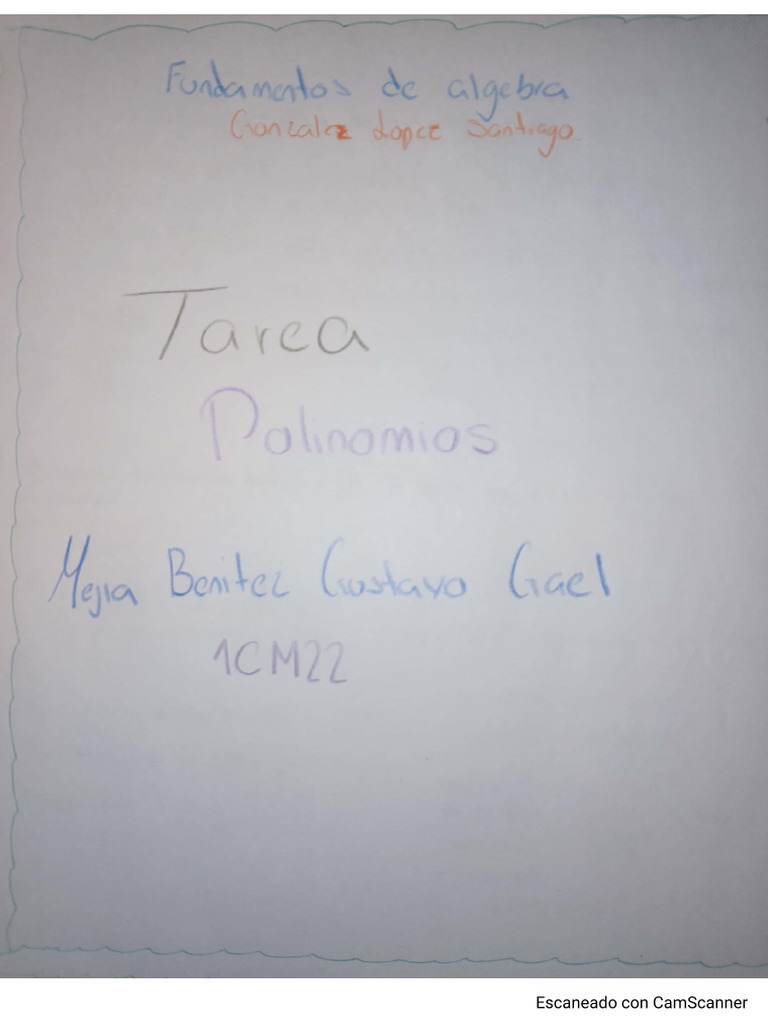 Fundamentos de algebra
Gonzalez Lopez Santiago.
Tarea
Polinomios
Mejia Benitez Gustavo Gael
1CM22
Escaneado con CamScanner